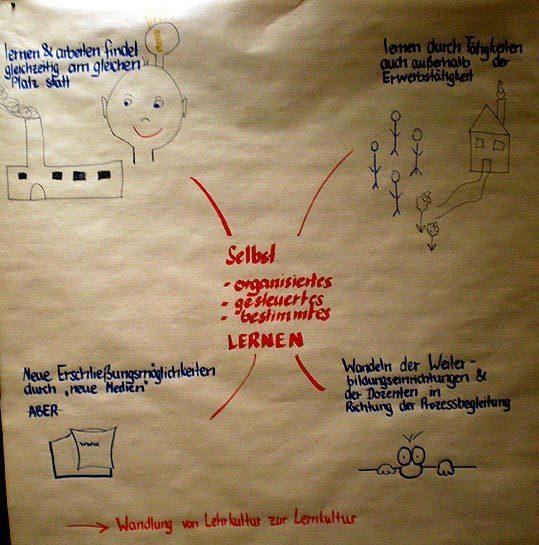 lernen & arbeiten findet
gleichzeitig am gleichen
Platz statt
lernen durch Tätigkeiten
auch außerhalb der
Erwerbstätigkeit
Selbst
- organisiertes
- gesteuertes
- bestimmtes
LERNEN
Neue Erschließungsmöglichkeiten
durch „neue Medien"
ABER
www
Wandeln der Weiter-
bildungseinrichtungen &
der Dozenten in
Richtung der Prozessbegleitung
→ Wandlung von Lehrkultur zur Lernkultur